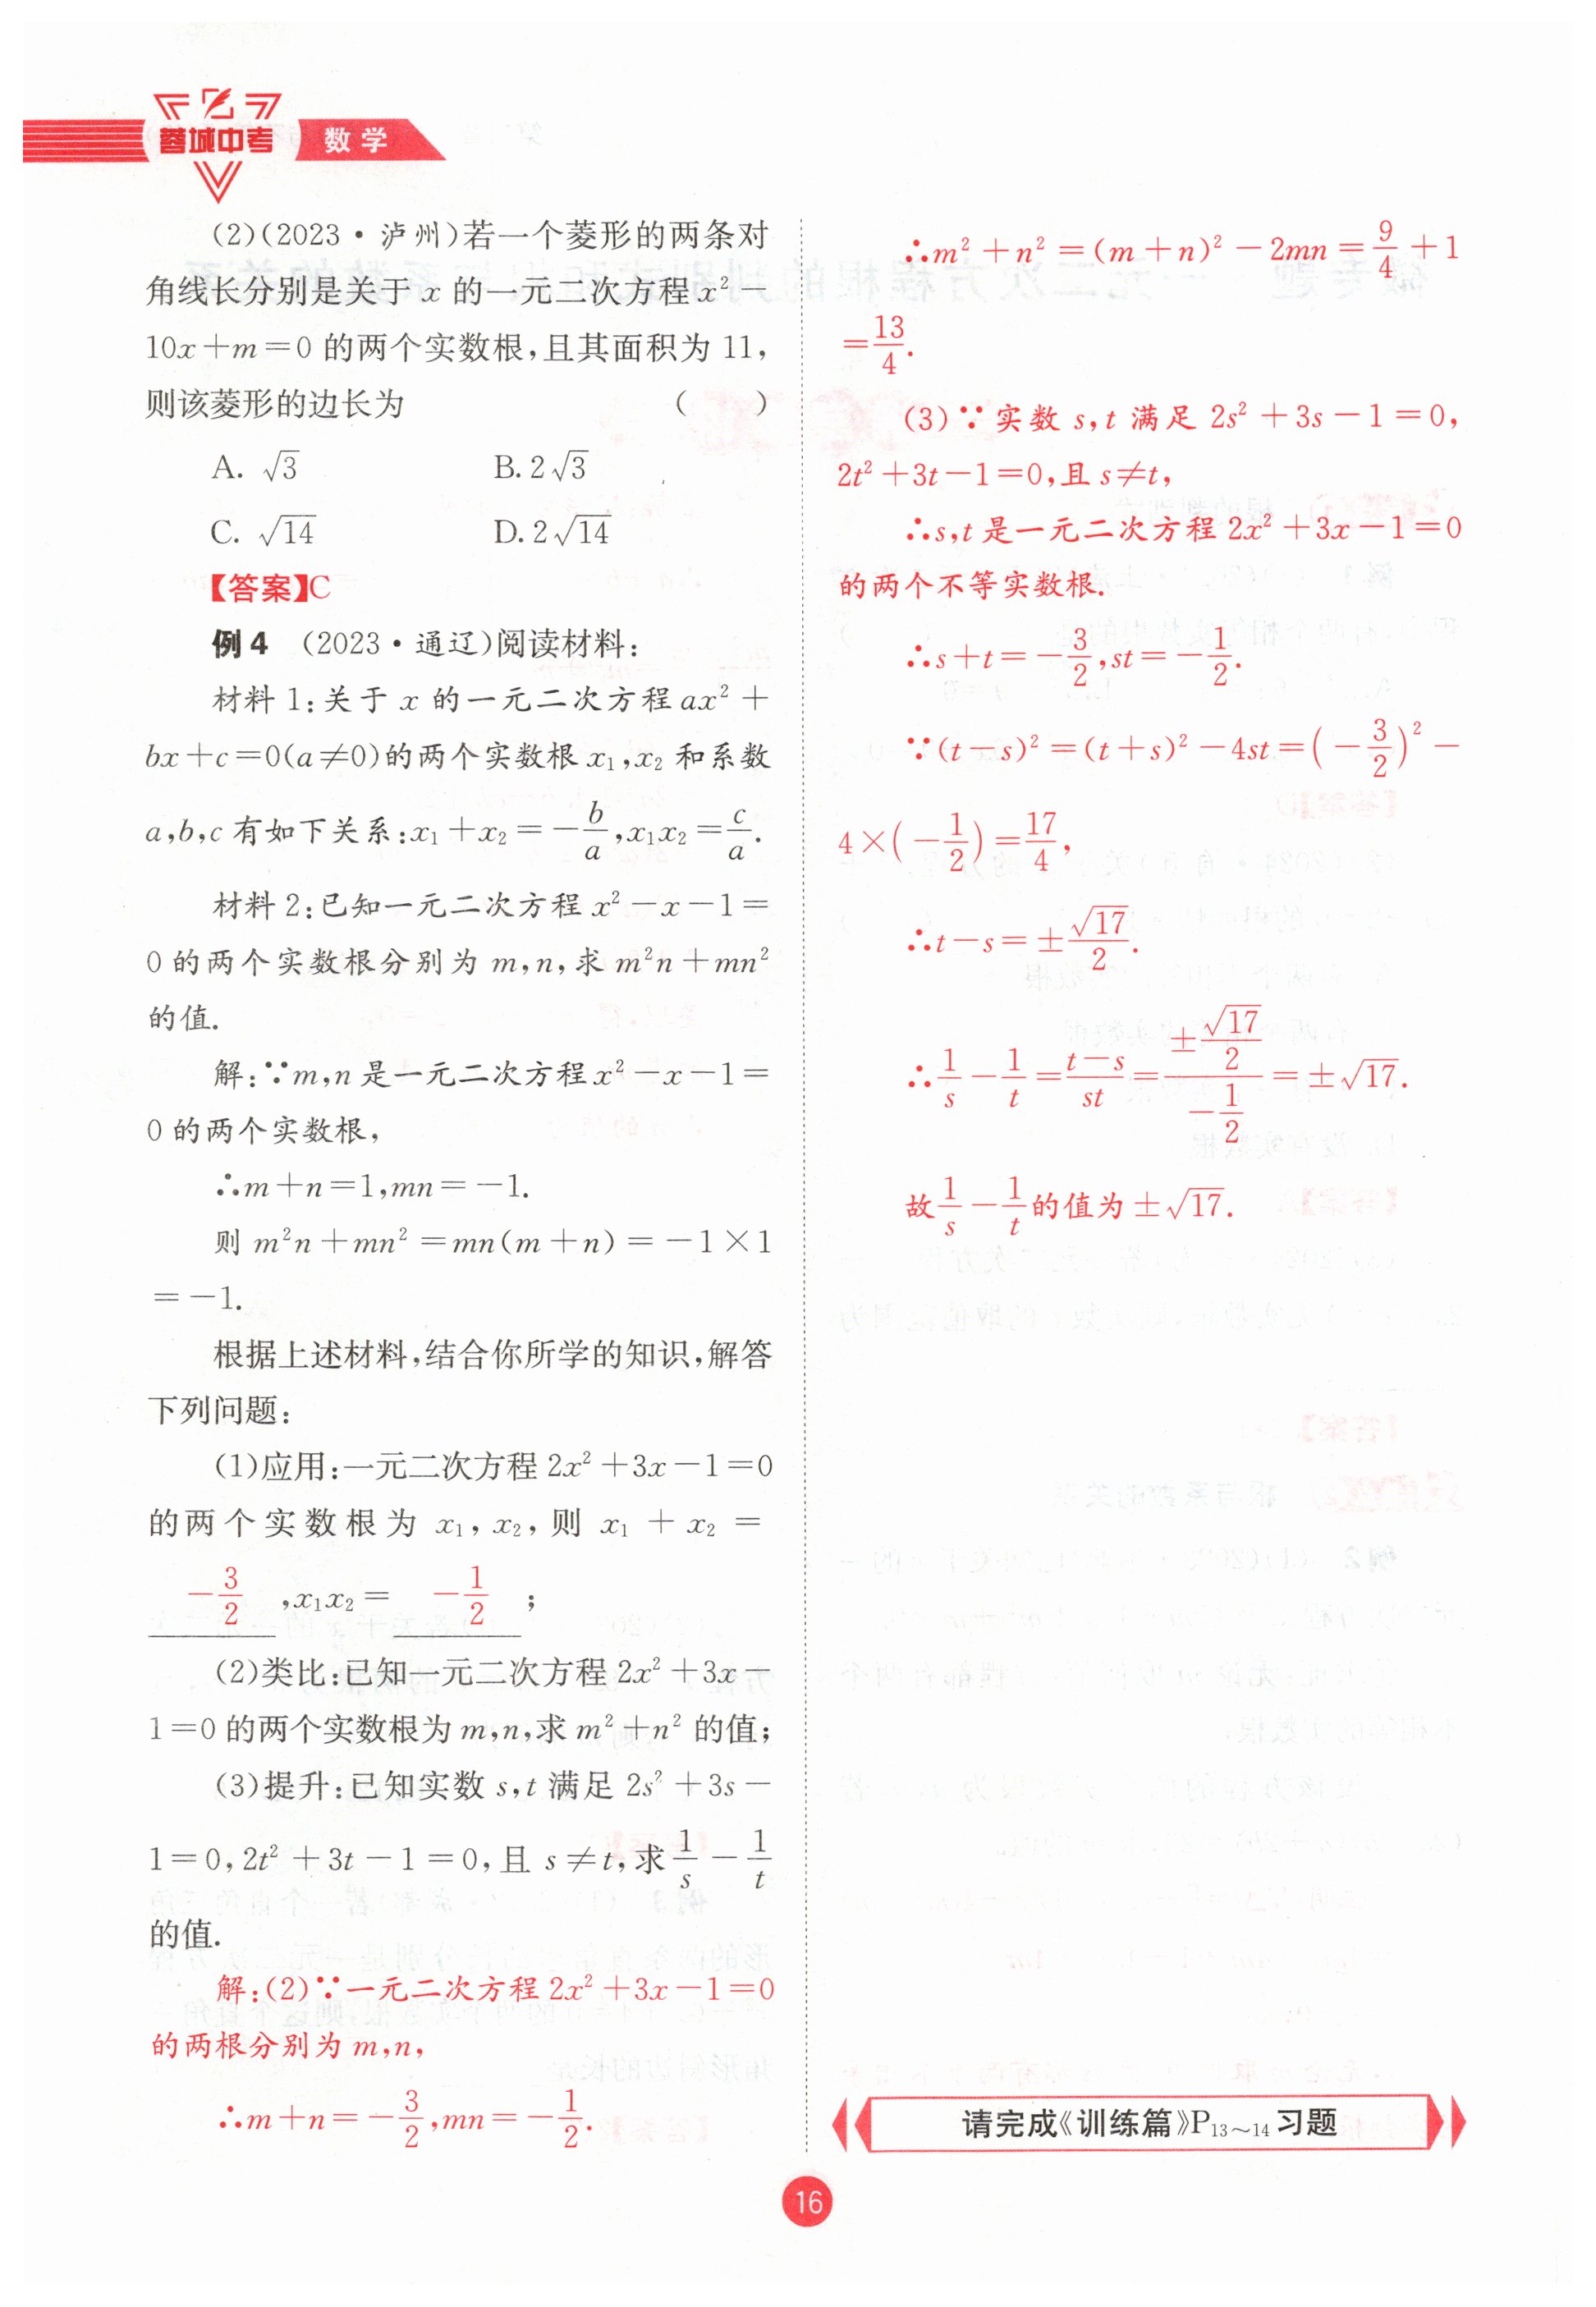 蓉城中考 数学
(2)(2023·泸州)若一个菱形的两条对
角线长分别是关于 x 的一元二次方程 x²－
10x＋m＝0 的两个实数根,且其面积为 11,
则该菱形的边长为 (　　)
A. √3　　B. 2√3
C. √14　　D. 2√14
【答案】C
例4 (2023·通辽)阅读材料:
材料 1:关于 x 的一元二次方程 ax²＋
bx＋c＝0(a≠0)的两个实数根 x₁,x₂ 和系数
a,b,c 有如下关系:x₁＋x₂＝－b/a,x₁x₂＝c/a.
材料 2:已知一元二次方程 x²－x－1＝
0 的两个实数根分别为 m,n,求 m²n＋mn²
的值.
解:∵m,n 是一元二次方程 x²－x－1＝
0 的两个实数根,
∴m＋n＝1,mn＝－1.
则 m²n＋mn²＝mn(m＋n)＝－1×1
＝－1.
根据上述材料,结合你所学的知识,解答
下列问题:
(1)应用:一元二次方程 2x²＋3x－1＝0
的两个实数根为 x₁,x₂,则 x₁＋x₂＝
－3/2 ,x₁x₂＝ －1/2 ;
(2)类比:已知一元二次方程 2x²＋3x－
1＝0 的两个实数根为 m,n,求 m²＋n² 的值;
(3)提升:已知实数 s,t 满足 2s²＋3s－
1＝0,2t²＋3t－1＝0,且 s≠t,求 1/s－1/t
的值.
解:(2)∵一元二次方程 2x²＋3x－1＝0
的两根分别为 m,n,
∴m＋n＝－3/2,mn＝－1/2.
∴m²＋n²＝(m＋n)²－2mn＝9/4＋1
＝13/4.
(3)∵实数 s,t 满足 2s²＋3s－1＝0,
2t²＋3t－1＝0,且 s≠t,
∴s,t 是一元二次方程 2x²＋3x－1＝0
的两个不等实数根.
∴s＋t＝－3/2,st＝－1/2.
∵(t－s)²＝(t＋s)²－4st＝(－3/2)²－
4×(－1/2)＝17/4,
∴t－s＝±√17/2.
∴1/s－1/t＝(t－s)/st＝(±√17/2)/(－1/2)＝±√17.
故 1/s－1/t 的值为±√17.
请完成《训练篇》P₁₃～₁₄ 习题
16